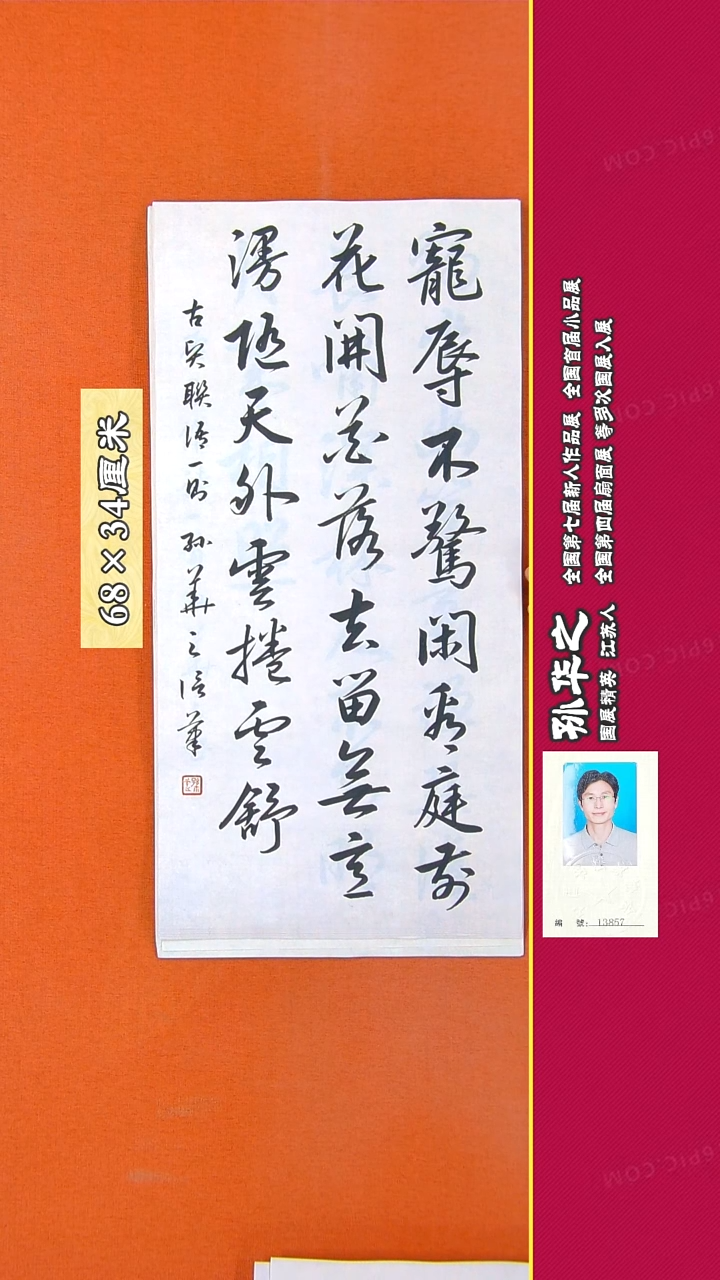 寵辱不驚閑看庭前
花開花落去留無意
漫隨天外雲捲雲舒
聯語一則 孫華之信筆
68×34厘米
孙华之
国展精英 江苏人
全国第七届新人作品展 全国首届小品展
全国第四届扇面展 等多次国展入展
編 號: 13857
6PIC.COM